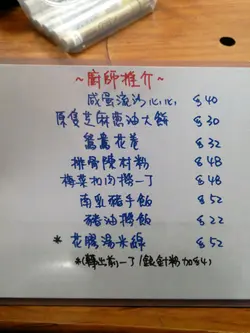 ~廚師推介~
咸蛋流沙心心 $40
原隻芝麻蔥油大餅 $30
鴛鴦花卷 $32
排骨陳村粉 $48
梅菜扣肉撈一丁 $48
南乳豬手飯 $52
豬油撈飯 $22
* 花膠湯米線 $52
*(轉出前一丁/銀針粉加$4)